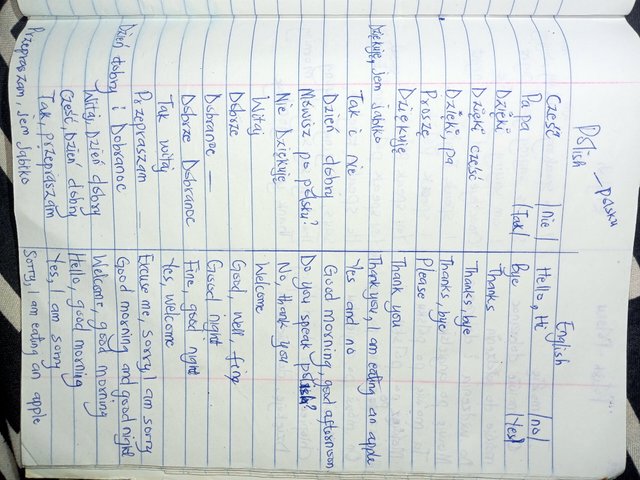 Polish – polsku English
Cześć |nie| Hello, Hi |no|
Pa pa |Tak| Bye |Yes|
Dzięki Thanks
Dzięki cześć Thanks, bye
Dzięki, pa Thanks, bye
Proszę Please
Dziękuję Thank you
Dziękuję, jem jabłko Thank you, I am eating an apple
Tak i nie Yes and no
Dzień dobry Good morning, good afternoon
Mówisz po polsku? Do you speak polish?
Nie Dziękuję No, thank you
Witaj Welcome
Dobrze Good, well, fine
Dobranoc — Good night
Dobrze Dobranoc Fine, good night
Tak witaj Yes, welcome
Przepraszam — Excuse me, sorry, I am sorry
Dzień dobry i Dobranoc Good morning and good night
Witaj, Dzień dobry Welcome, good morning
Cześć, Dzień dobry Hello, good morning
Tak przepraszam Yes, I am sorry
Przepraszam, jem jabłko Sorry, I am eating an apple